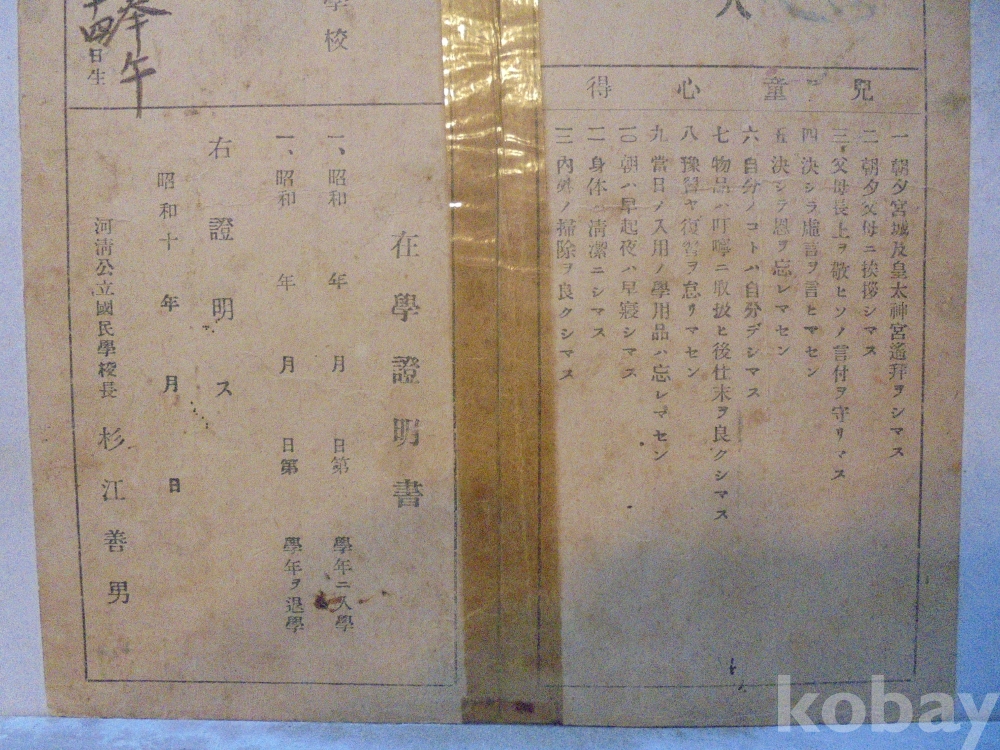 人
兒童心得
一 朝夕宮城及皇太神宮遙拜ヲシマス
二 朝夕父母ニ挨拶シマス
三 父母長上ヲ敬ヒソノ言付ヲ守リマス
四 決シテ虛言ヲ言ヒマセン
五 決シテ恩ヲ忘レマセン
六 自分ノコトハ自分デシマス
七 物品ハ叮嚀ニ取扱ヒ後仕末ヲ良クシマス
八 豫習ヤ復習ヲ怠リマセン
九 當日ノ入用ノ學用品ハ忘レマセン
一〇 朝ハ早起夜ハ早寢シマス
一一 身体ハ清潔ニシマス
一二 內外ノ掃除ヲ良クシマス
學校
奉午
十四日生
在學證明書
一、昭和 年 月 日第 學年ニ入學
一、昭和 年 月 日第 學年ヲ退學
右證明ス
昭和十 年 月 日
河淸公立國民學校長 杉江善男
kobay